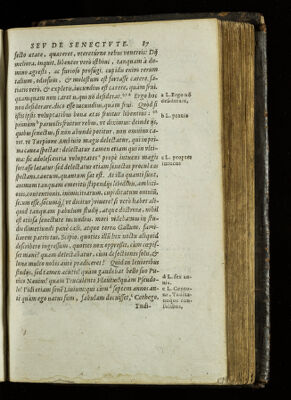 SEV DE SENECTVTE. 87
fecto ætate, quæreret, vtereturne rebus venereis: Dij
meliora, inquit. libenter verò istinc, tanquam à do-
mino agresti, ac furioso profugi. cupidis enim rerum
talium, odiosum, & molestum est fortasse carere. sa-
tiatis verò, & expletis, iucundius est carere, quàm frui.
quanquam non caret is, qui nō desiderat. Ergo hoc
non desiderare, dico esse iucundius, quàm frui. Quòd si
istis ipsis voluptatibus bona ætas fruitur libentius:
primùm paruulis fruitur rebus, vt diximus: deinde ijs,
quibus senectus, si non abundè potitur, non omnino ca-
ret. vt Turpione Ambiuio magis delectatur, qui in pri-
ma cauea spectat: delectatur tamen etiam qui in vlti-
ma: sic adolescentia voluptates propè intuens magis
fortasse lætatur: sed delectatur etiam senectus procul eas
spectans, tantum, quantum sat est. At illa quanti sunt,
animum tanquam emeritis stipendijs libidinis, ambitio-
nis, contentionis, inimicitiarum, cupiditatum omnium,
secum esse, secumq; vt dicitur, viuere? si verò habet ali-
quod tanquam pabulum studij, atque doctrinæ, nihil
est otiosa senectute iucundius. mori videbamus in stu-
dio dimetiendi penè cæli, atque terræ Gallum, fami-
liarem patris tui, Scipio. quoties illū lux noctu aliquid
describere ingressum, quoties nox oppressit, cùm cœpis-
set manè! quàm delectabatur, cùm defectiones solis, &
lunæ multo nobis antè prædiceret! Quid in leuioribus
studijs, sed tamen acutis? quàm gaudebat bello suo Pu-
nico Næuius! quàm Truculento Plautus! quàm Pseudo-
lo! Vidi etiam senē Liuium: qui cùm septem annis an-
te quàm ego natus sum, fabulam docuisset, Cethego,
Tudi-
a L. Ergo nō
desiderare,
b L. paruis
c L. propter
intuens
d L. sex an-
nis.
e L. Cento-
ne, Tudita-
noque con-
sulibus,